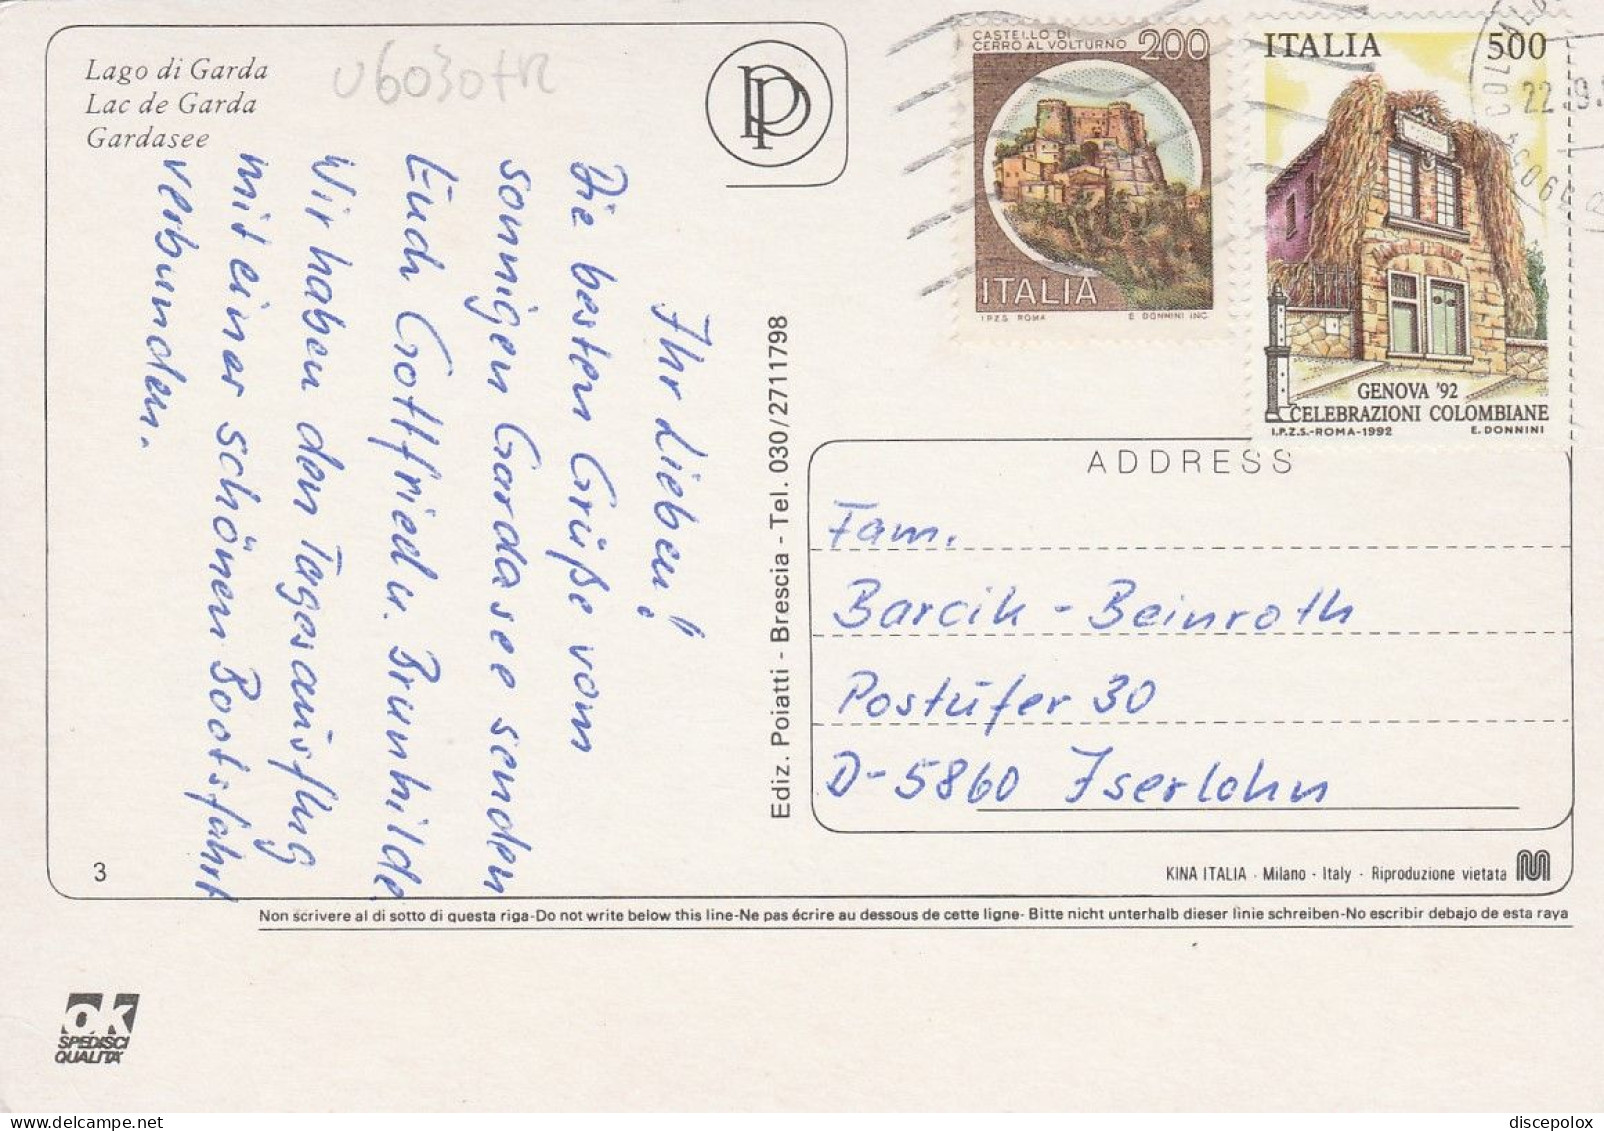 Lago di Garda
Lac de Garda
Gardasee
U6030tR
PP
Ihr Lieben!
Die besten Grüße vom
sonnigen Gardasee senden
Euch Gottfried u. Brunhilde
Wir haben den Tagesausflug
mit einer schönen Bootsfahrt
verbunden.
3
Ediz. Poiatti - Brescia - Tel. 030/2711798
CASTELLO DI
CERRO AL VOLTURNO 200
ITALIA
I.P.Z.S. ROMA E. DONNINI INC.
ITALIA 500
GENOVA '92
CELEBRAZIONI COLOMBIANE
I.P.Z.S.-ROMA-1992 E. DONNINI
22.9.
ADDRESS
Fam.
Barcik-Beinroth
Postufer 30
D-5860 Iserlohn
KINA ITALIA - Milano - Italy - Riproduzione vietata
Non scrivere al di sotto di questa riga-Do not write below this line-Ne pas écrire au dessous de cette ligne- Bitte nicht unterhalb dieser linie schreiben-No escribir debajo de esta raya
OK
SPEDISCI
QUALITA'
discepolox